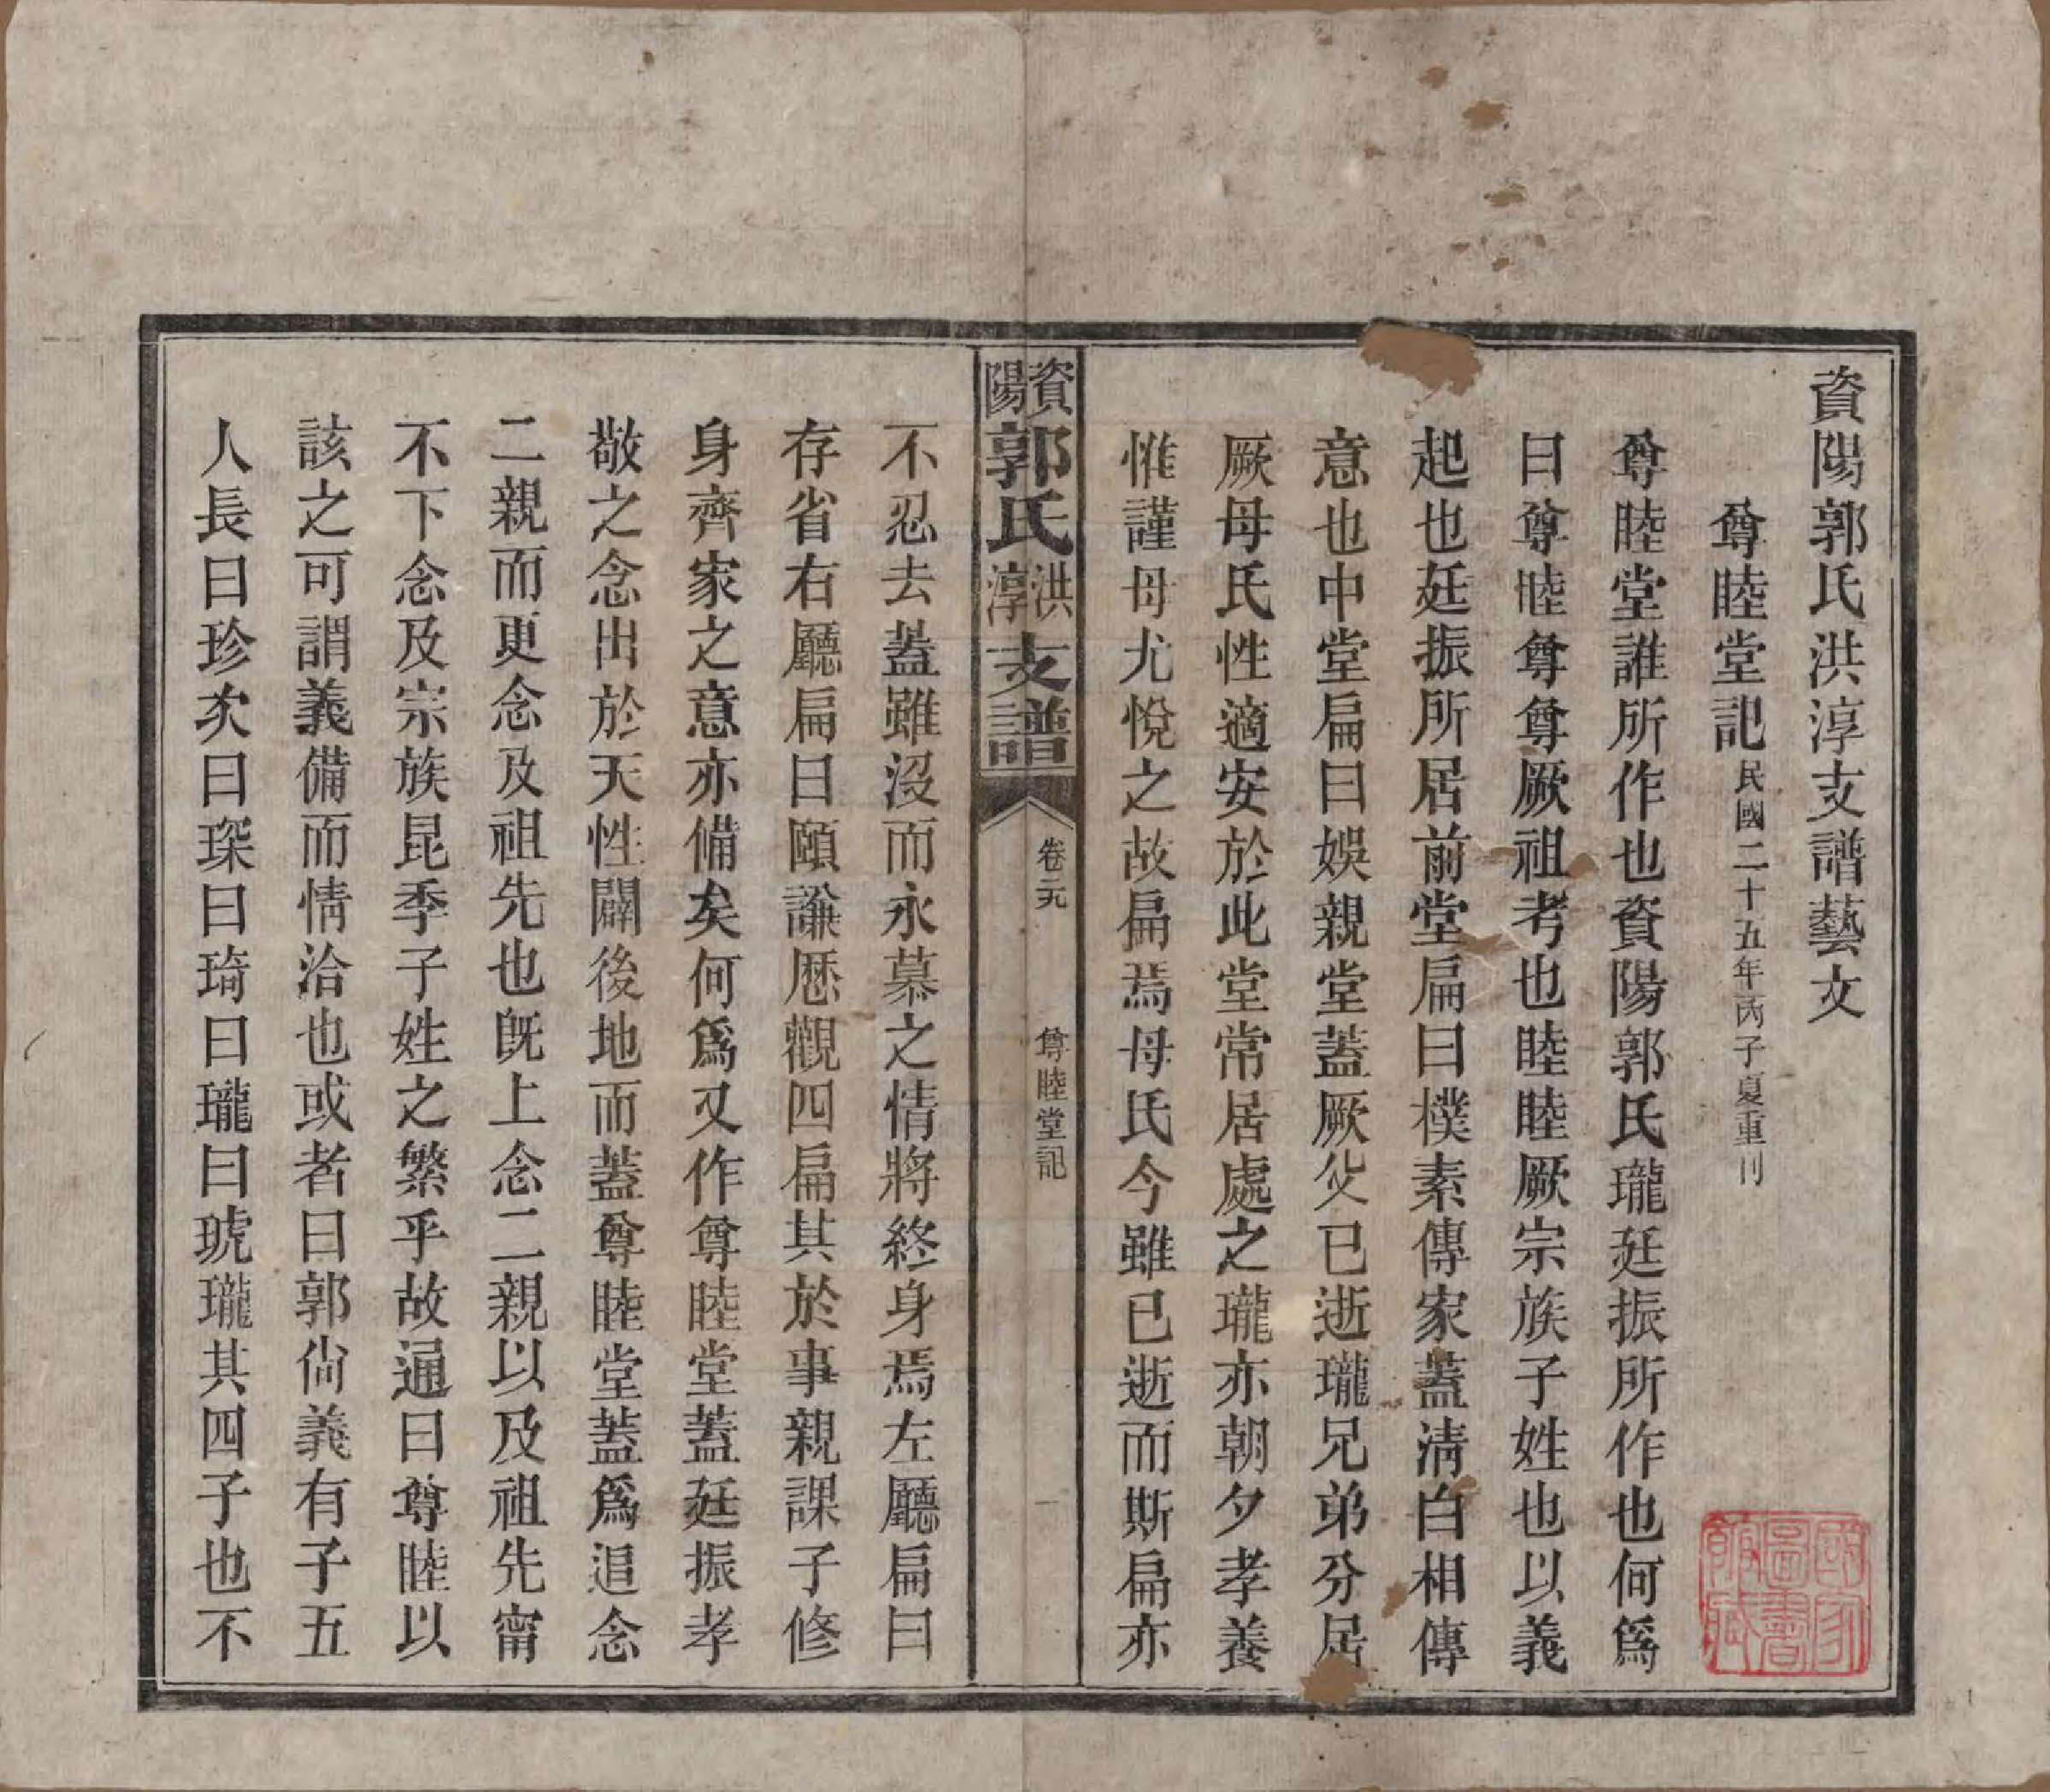 資陽郭氏洪淳支譜藝文
尊睦堂記民國二十五年丙子夏重刊
尊睦堂誰所作也資陽郭氏瓏廷振所作也何爲
曰尊睦尊尊厥祖考也睦睦厥宗族子姓也以義
起也廷振所居前堂扁曰樸素傳家蓋淸白相傳
意也中堂扁曰娛親堂蓋厥父已逝瓏兄弟分居
厥母氏性適安於此堂常居處之瓏亦朝夕孝養
惟謹母尤悅之故扁焉母氏今雖已逝而斯扁亦
資陽郭氏洪淳支譜
卷元
尊睦堂記
一
不忍去蓋雖沒而永慕之情將終身焉左廳扁曰
存省右廳扁曰頤謙厯觀四扁其於事親課子修
身齊家之意亦備矣何爲又作尊睦堂蓋廷振孝
敬之念出於天性闢後地而蓋尊睦堂蓋爲追念
二親而更念及祖先也旣上念二親以及祖先甯
不下念及宗族昆季子姓之繁乎故通曰尊睦以
該之可謂義備而情洽也或者曰郭尙義有子五
人長曰珍次曰琛曰琦曰瓏曰琥瓏其四子也不
國家圖書館藏